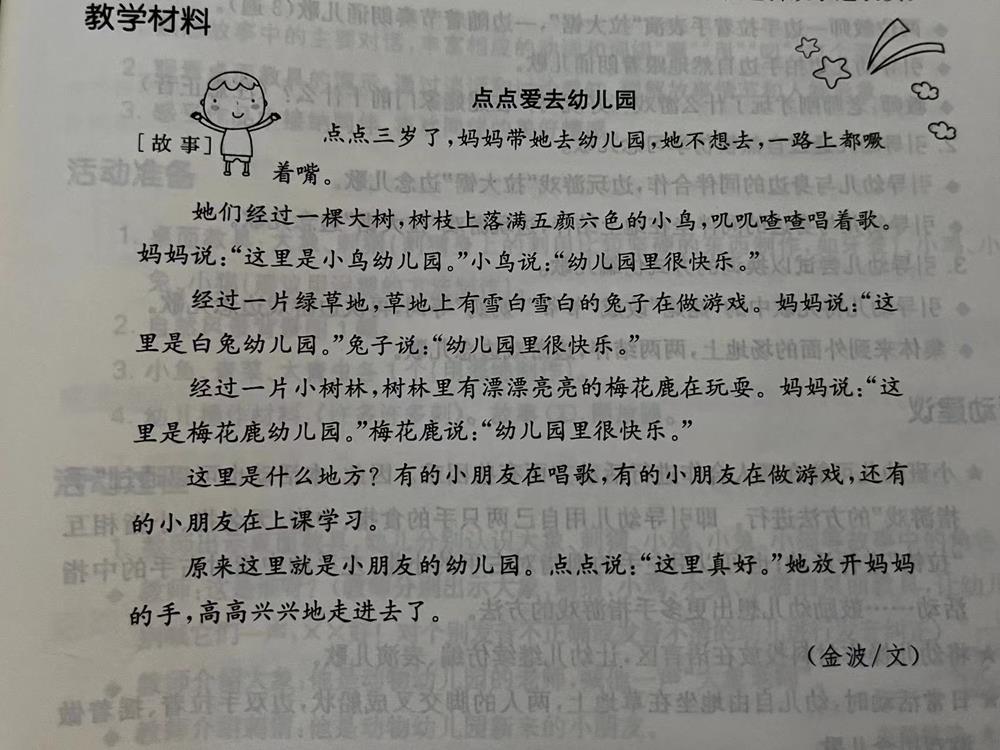 教学材料
点点爱去幼儿园
[故事]
点点三岁了，妈妈带她去幼儿园，她不想去，一路上都噘
着嘴。
她们经过一棵大树，树枝上落满五颜六色的小鸟，叽叽喳喳唱着歌。
妈妈说：“这里是小鸟幼儿园。”小鸟说：“幼儿园里很快乐。”
经过一片绿草地，草地上有雪白雪白的兔子在做游戏。妈妈说：“这
里是白兔幼儿园。”兔子说：“幼儿园里很快乐。”
经过一片小树林，树林里有漂漂亮亮的梅花鹿在玩耍。妈妈说：“这
里是梅花鹿幼儿园。”梅花鹿说：“幼儿园里很快乐。”
这里是什么地方？有的小朋友在唱歌，有的小朋友在做游戏，还有
的小朋友在上课学习。
原来这里就是小朋友的幼儿园。点点说：“这里真好。”她放开妈妈
的手，高高兴兴地走进去了。
（金波/文）